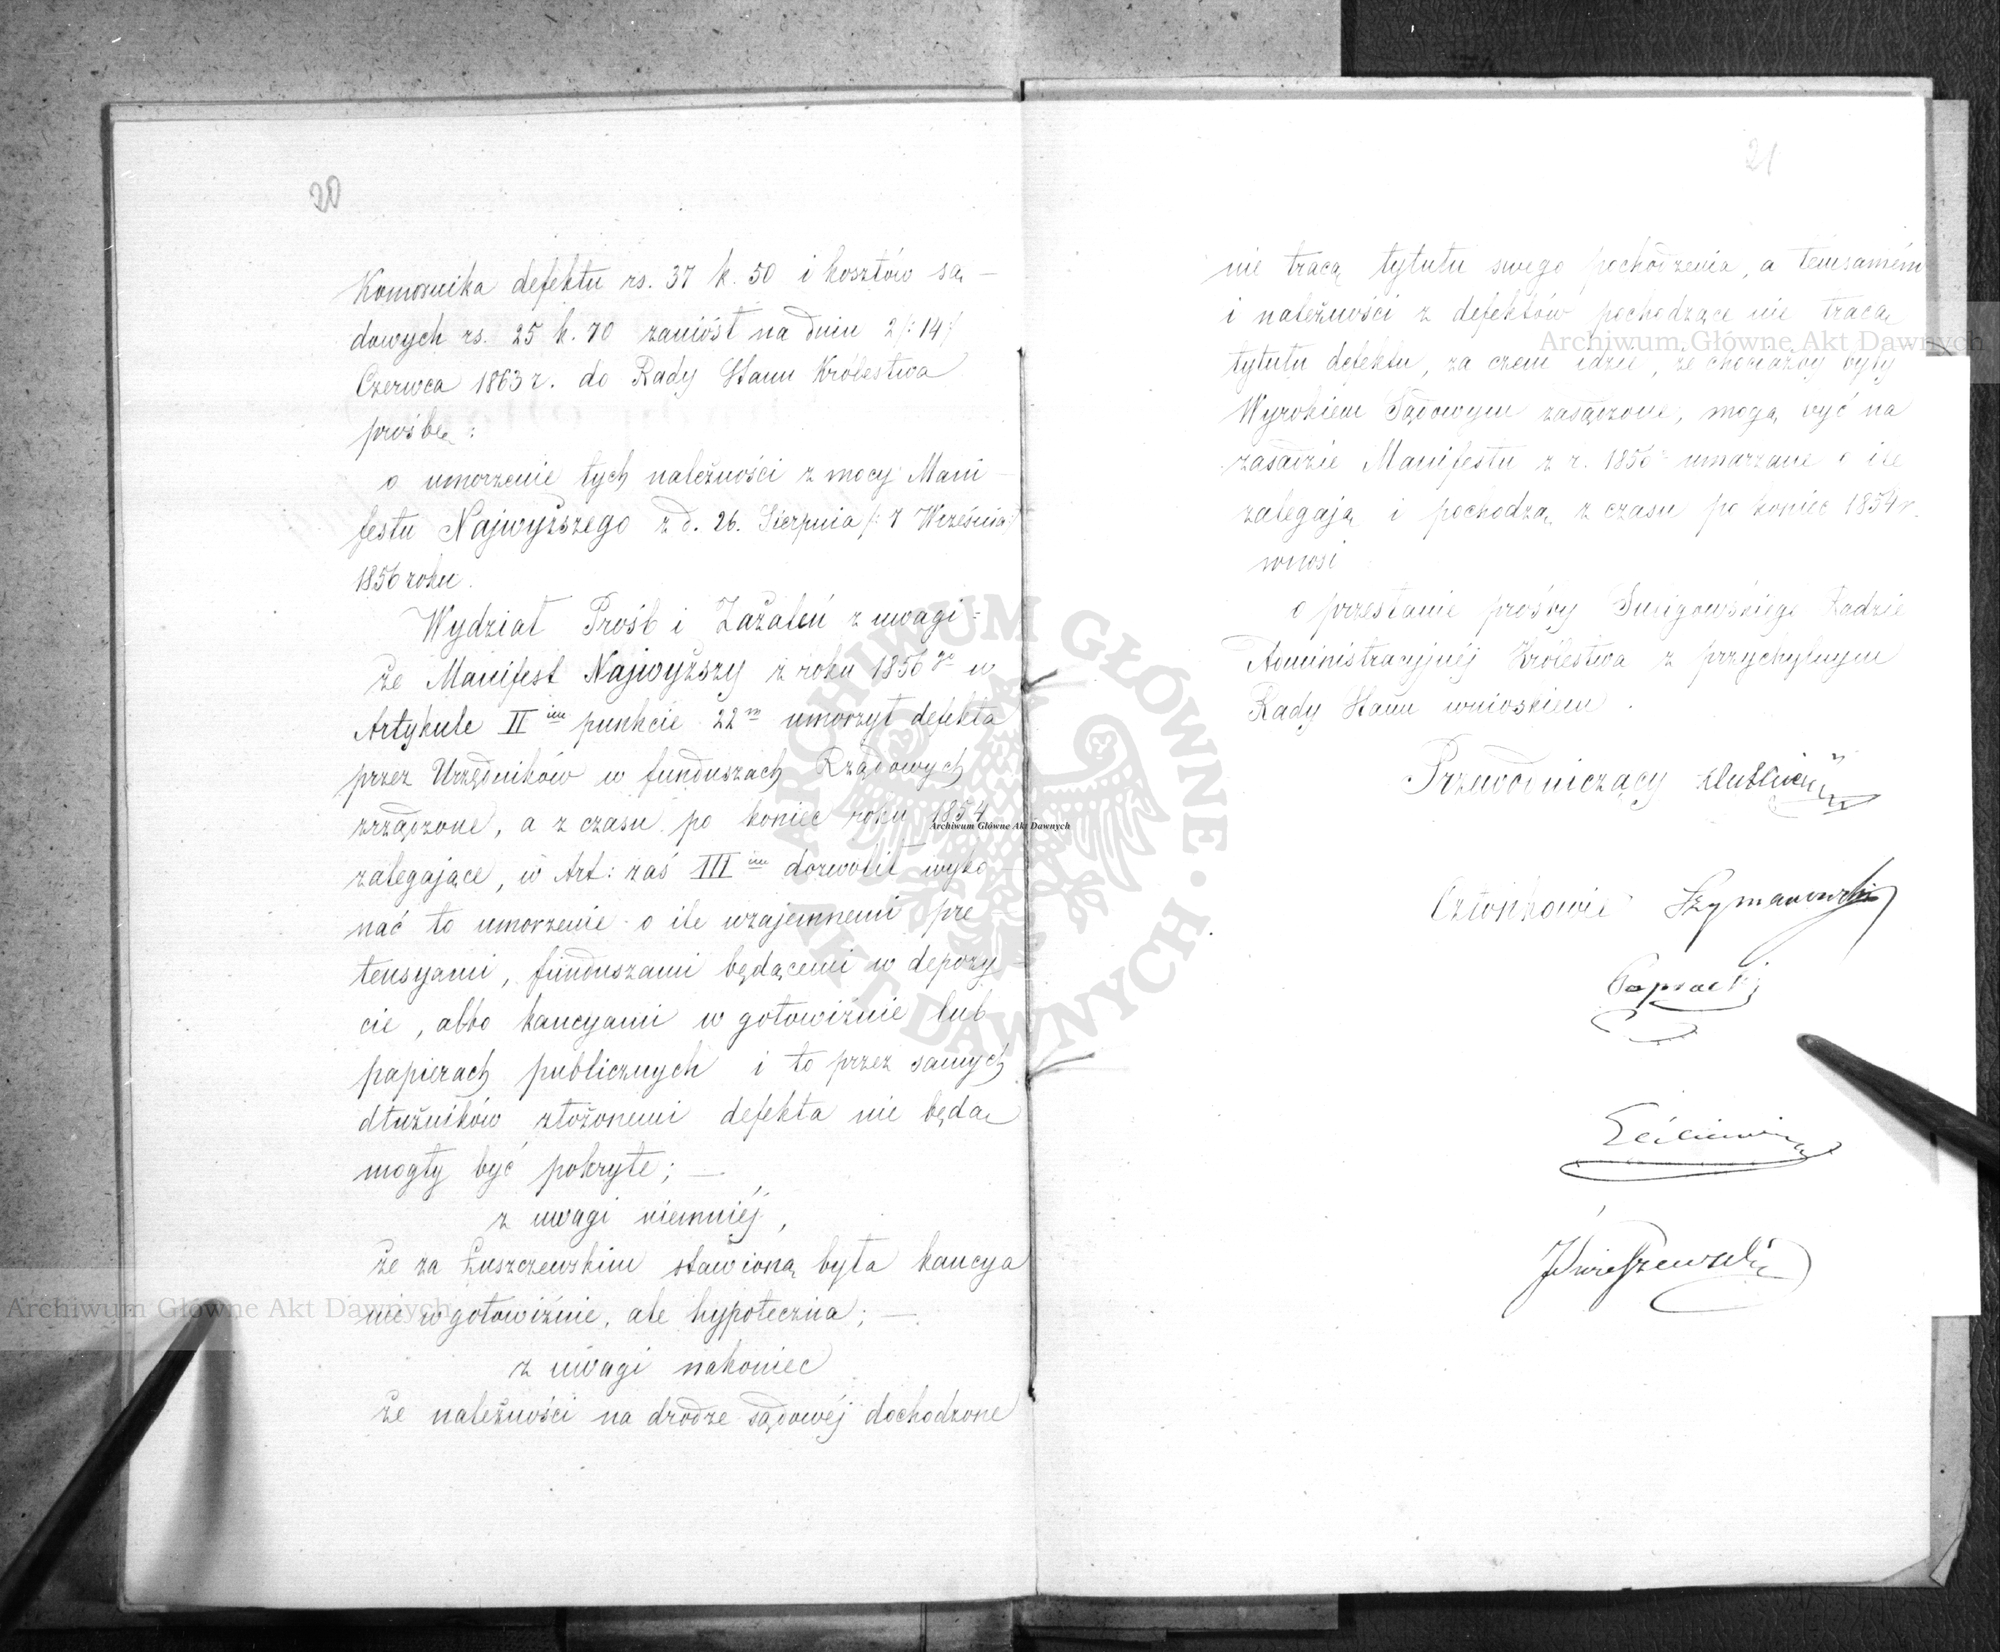 20
Komornika defektu rs. 37 k. 50 i kosztów są-
dowych rs. 25 k. 70 zaniósł na dniu 2/:14:/
Czerwca 1863 r. do Rady Stanu Królestwa
prośbę:
o umorzenie tych należności z mocy Mani-
festu Najwyższego z d. 26. Sierpnia /:7 Września:/
1856 roku.
Wydział Próśb i Zażaleń z uwagi:
że Manifest Najwyższy z roku 1856go w
Artykule IIim punkcie 22m umorzył defekta
przez Urzędników w funduszach Rządowych
zrządzone, a z czasu po koniec roku 1854
zalegające, w Art: zaś IIIim dozwolił wyko-
nać to umorzenie o ile wzajemnemi pre-
tensyami, funduszami będącemi w depozy-
cie, albo kaucyami w gotowiźnie lub
papierach publicznych i to przez samych
dłużników złożonemi defekta nie będą
mogły być pokryte; —
z uwagi niemniéj,
że za Łuszczewskim stawioną była kaucya
nie w gotowiźnie, ale hypoteczna; —
z uwagi nakoniec
że należności na drodze sądowéj dochodzone
21
nie tracą tytułu swego pochodzenia, a temsamém
i należności z defektów pochodzące nie tracą
tytułu defektu, za czem idzie, że chociażby były
Wyrokiem Sądowym zasądzone, mogą być na
zasadzie Manifestu z r. 1856 umarzane o ile
zalegają i pochodzą z czasu po koniec 1854 r.
wnosi
o przesłanie prośby Śmigowskiego Radzie
Administracyjnéj Królestwa z przychylnym
Rady Stanu wnioskiem.
Przewodniczący
Członkowie Szymanowski
Paprocki
Archiwum Główne Akt Dawnych
Archiwum Główne Akt Dawnych
Archiwum Główne Akt Dawnych
ARCHIWUM GŁÓWNE AKT DAWNYCH